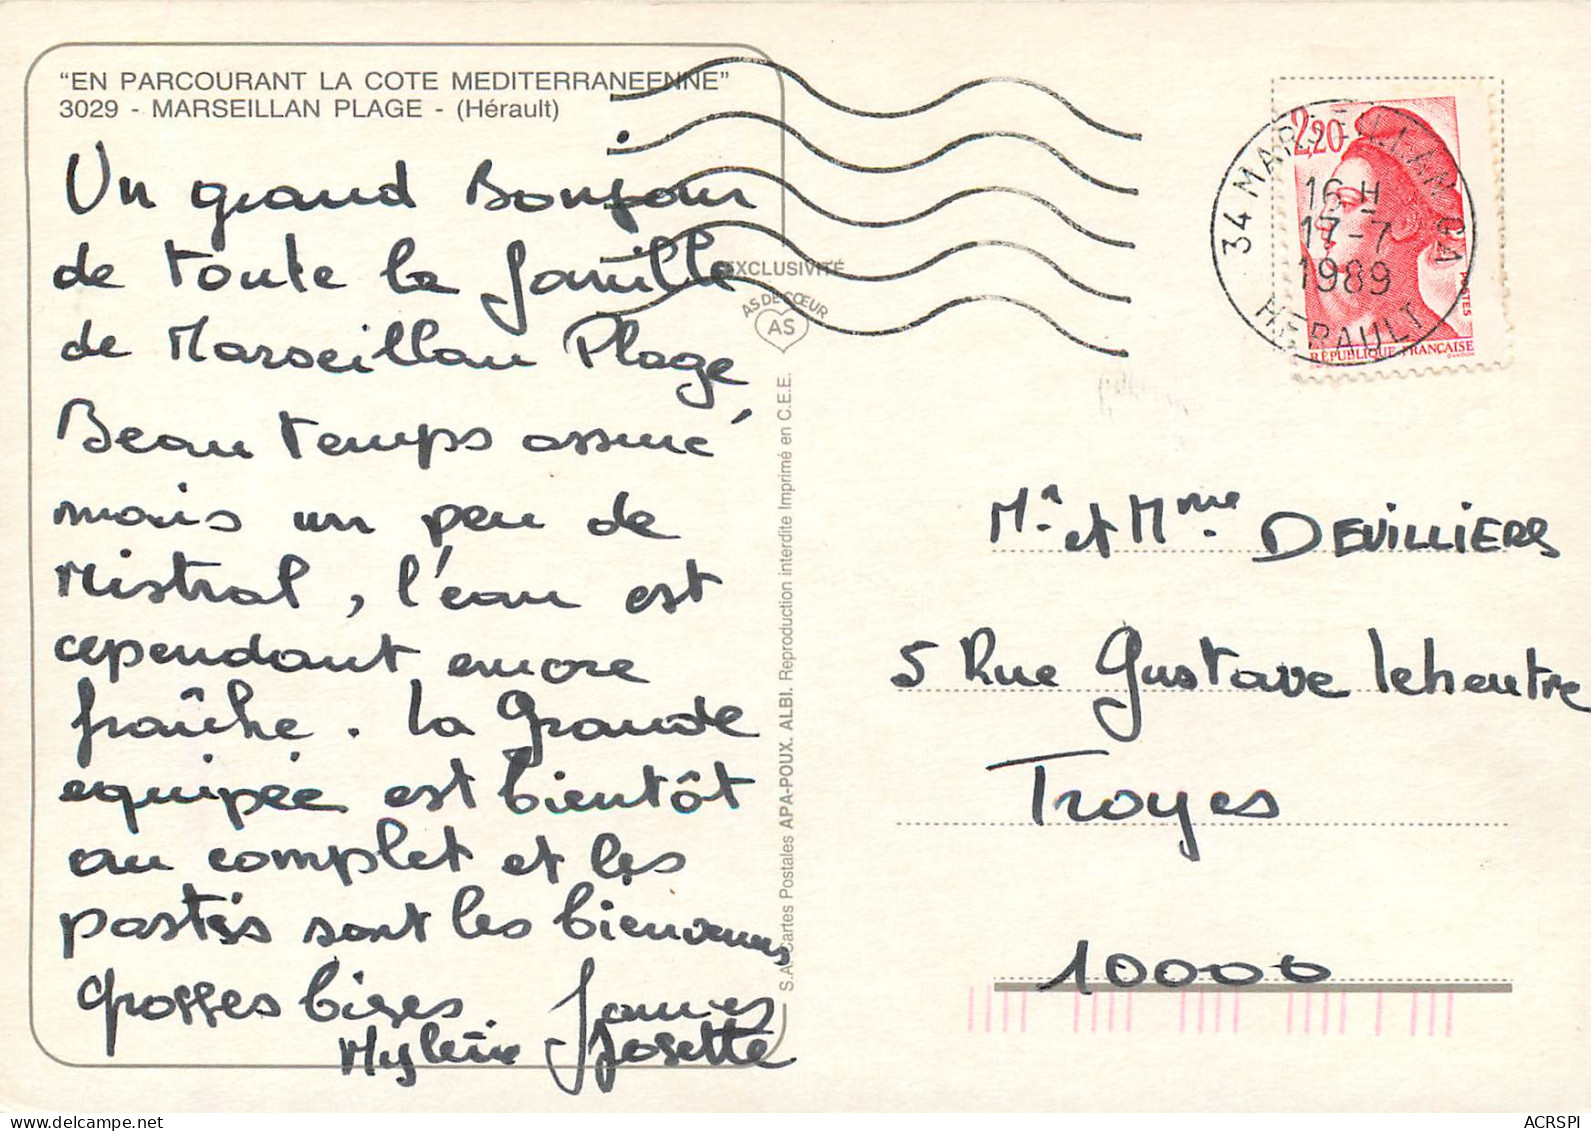 "EN PARCOURANT LA COTE MEDITERRANEENNE"
3029 - MARSEILLAN PLAGE - (Hérault)
Un grand Bonjour
de toute la famille
de Marseillan Plage
Beau temps assuré
mais un peu de
Mistral, l'eau est
cependant encore
fraîche. La Grande
equipée est bientôt
au complet et les
pastis sont les bienvenus
Grosses bises. James
Mylène Josette
EXCLUSIVITÉ
AS DE CŒUR
AS
S.A. Cartes Postales APA-POUX. ALBI. Reproduction interdite Imprimé en C.E.E.
2,20
POSTES
RÉPUBLIQUE FRANÇAISE
34 MARSEILLAN
16 H
17-7
1989
HERAULT
Mr. et Mme. DEVILLIERS
5 Rue Gustave Lebeutre
Troyes
10000
delcampe.net
ACRSPI